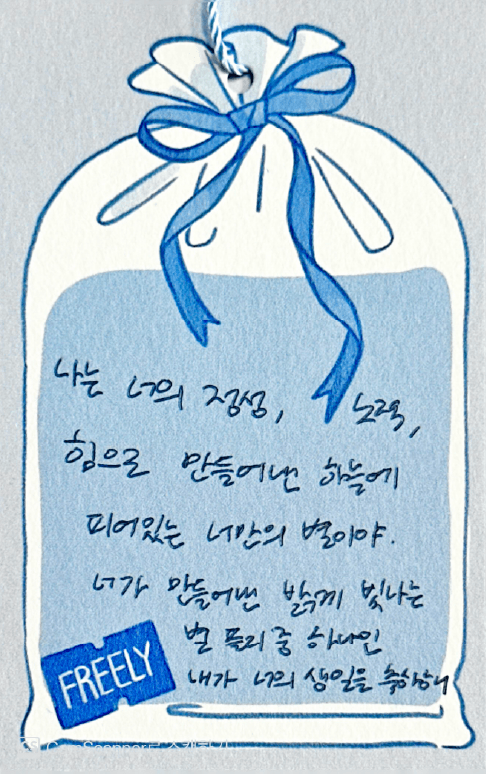 나는 너의 정성, 노력,
힘으로 만들어낸 하늘에
피어있는 너만의 별이야.
너가 만들어낸 밝게 빛나는
별 플리 중 하나인
내가 너의 생일을 축하해
FREELY
CamScanner로 스캔하기